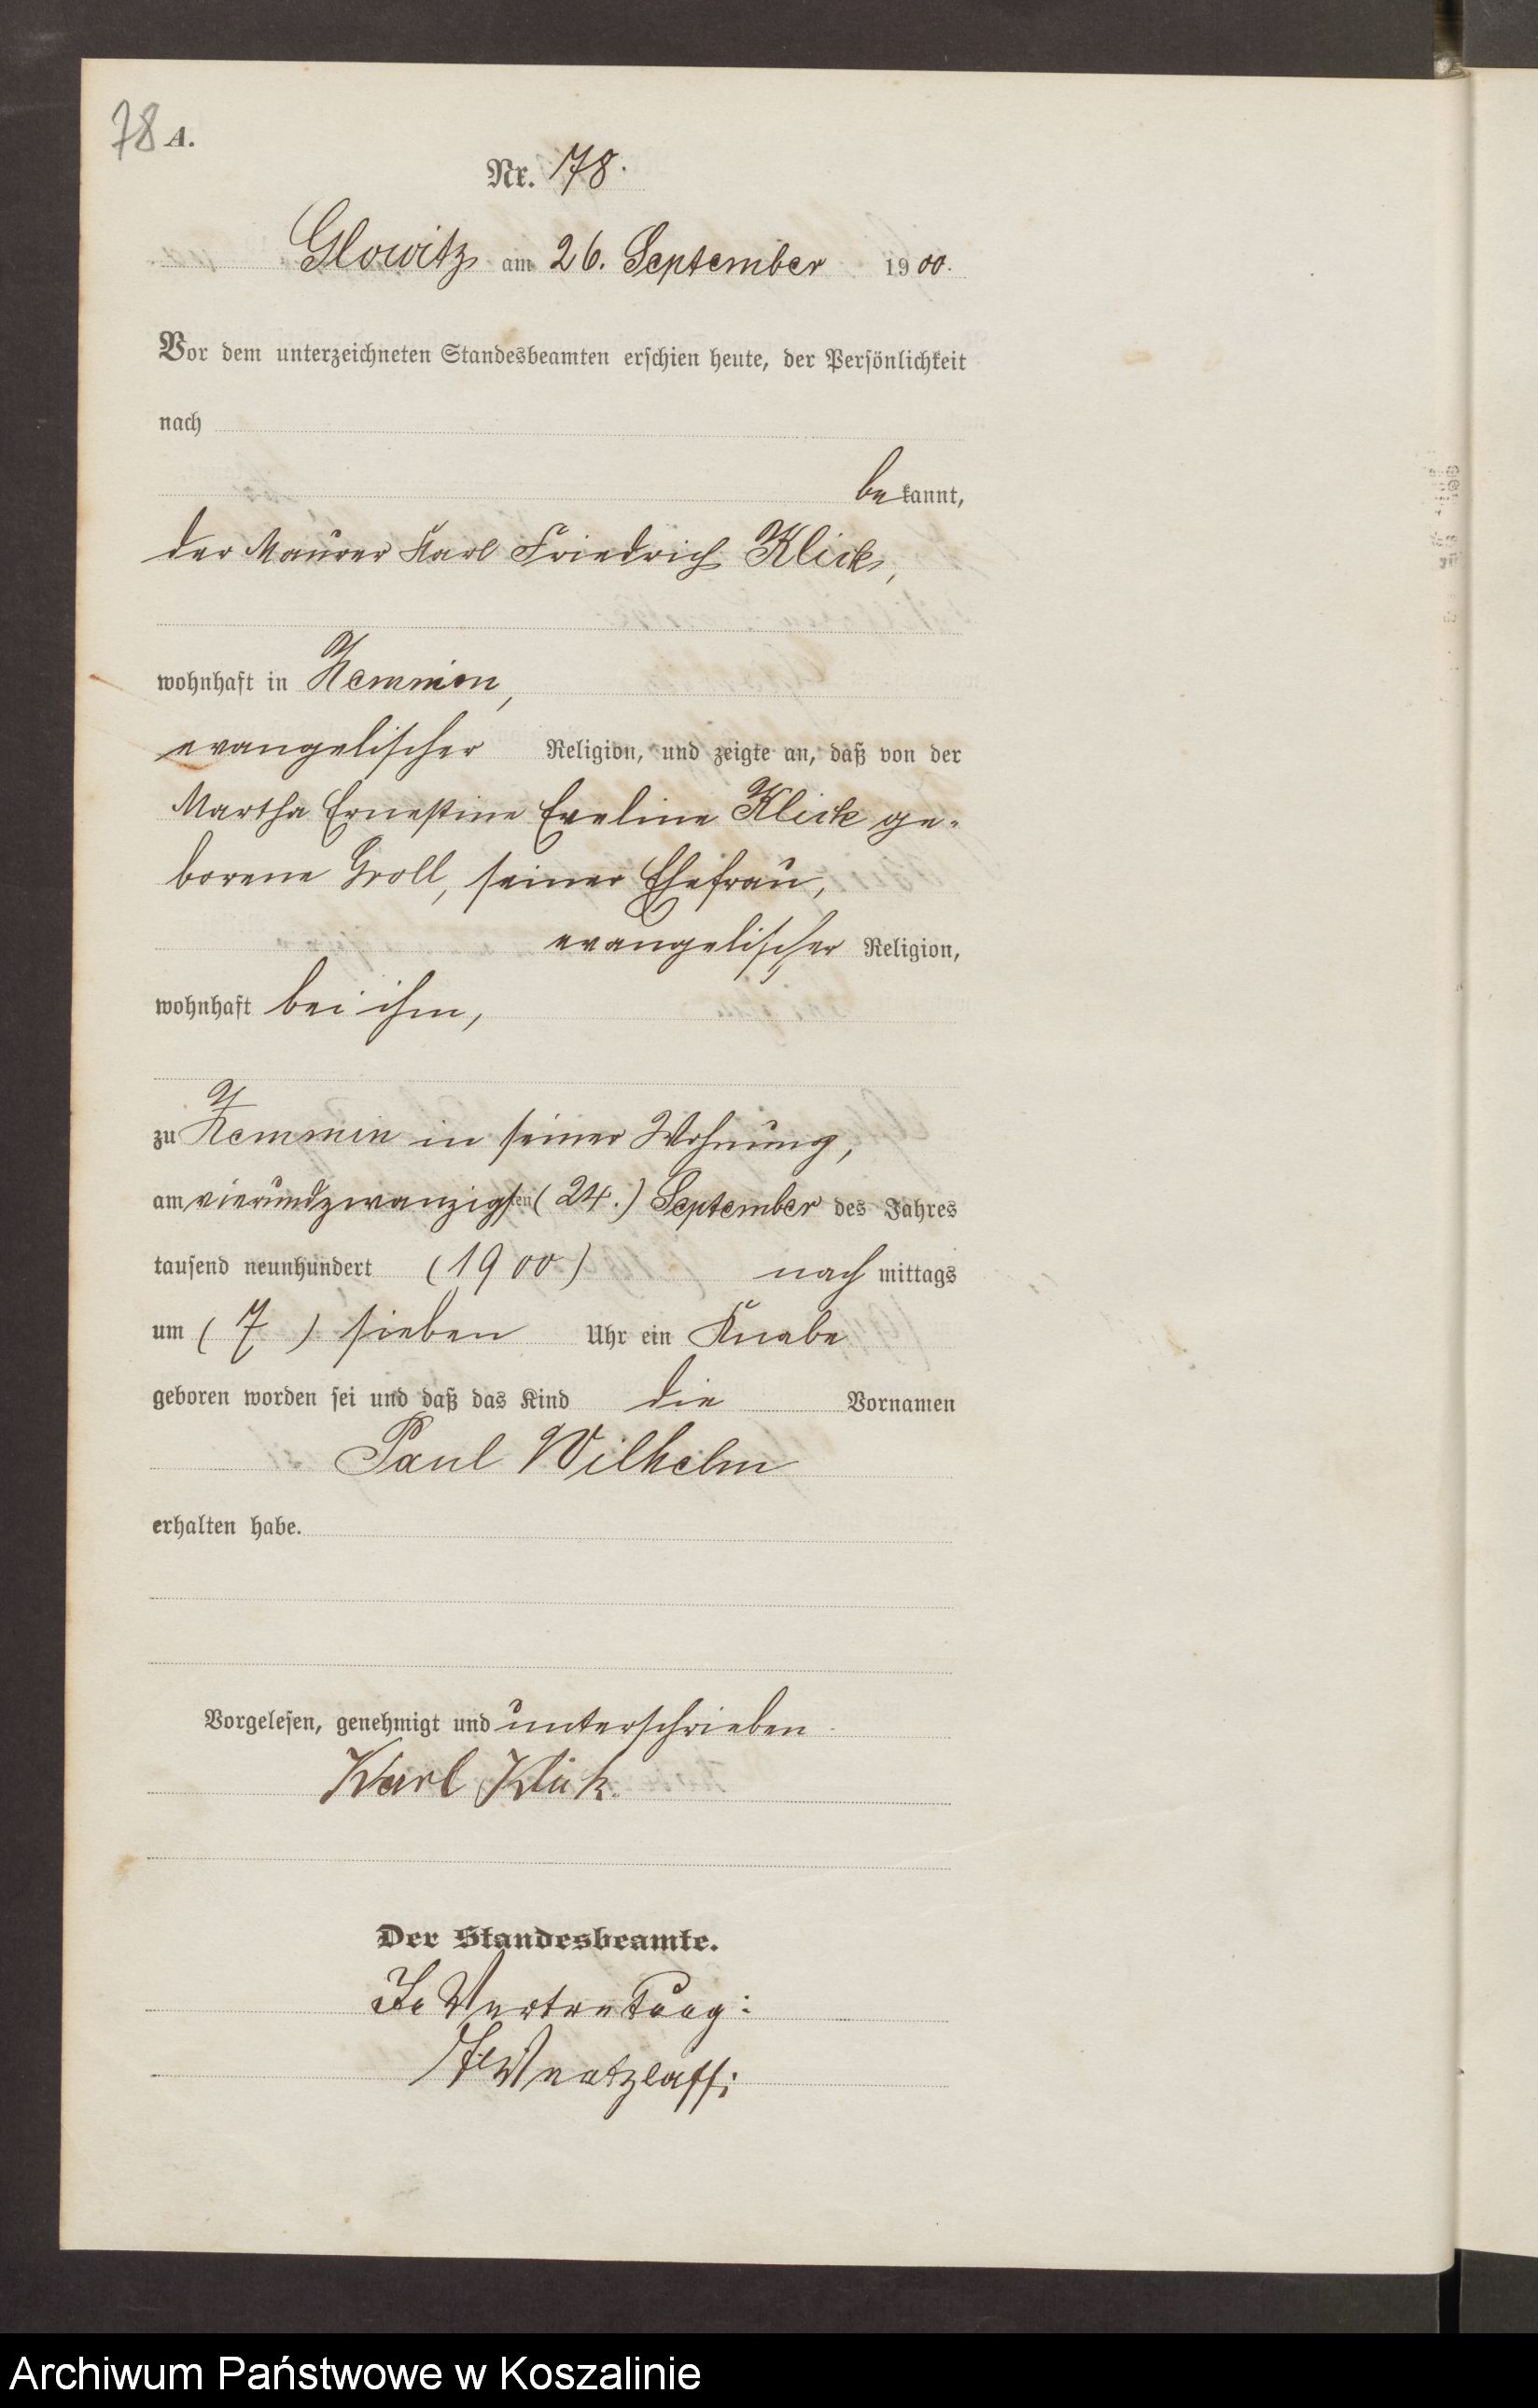 78 A.
Nr. 78.
Glowitz am 26. September 1900.
Vor dem unterzeichneten Standesbeamten erschien heute, der Persönlichkeit
nach
bekannt,
der Maurer Karl Friedrich Klick,
wohnhaft in Zemmin,
evangelischer Religion, und zeigte an, daß von der
Martha Ernestine Eveline Klick ge-
borene Groll, seiner Ehefrau,
evangelischer Religion,
wohnhaft bei ihm,
zu Zemmin in seiner Wohnung,
am vierundzwanzigsten (24.) September des Jahres
tausend neunhundert (1900) nach mittags
um (7) sieben Uhr ein Knabe
geboren worden sei und daß das Kind die Vornamen
Paul Wilhelm
erhalten habe.
Vorgelesen, genehmigt und unterschrieben
Karl Klick.
Der Standesbeamte.
In Vertretung:
Archiwum Państwowe w Koszalinie